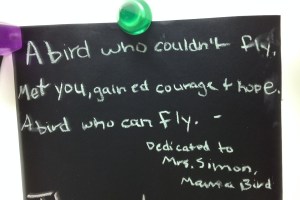 A bird who couldn't fly.
Met you, gained courage + hope.
A bird who can fly. -
Dedicated to
Mrs. Simon,
Mama Bird